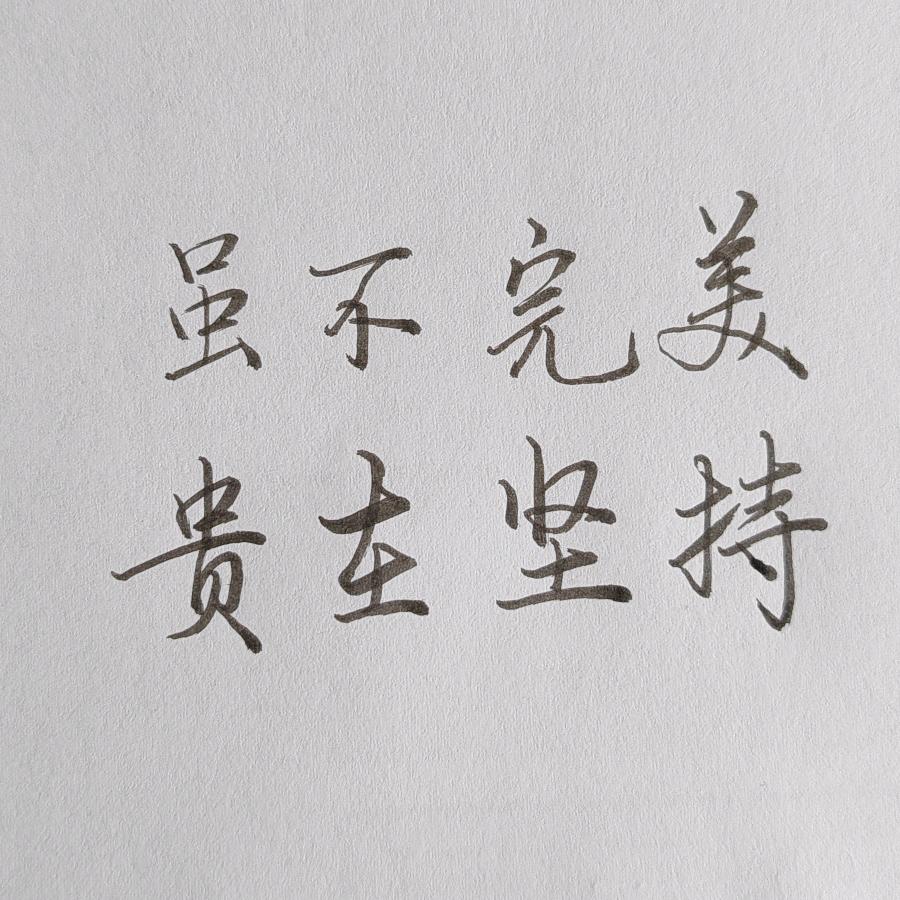 虽不完美
贵在坚持